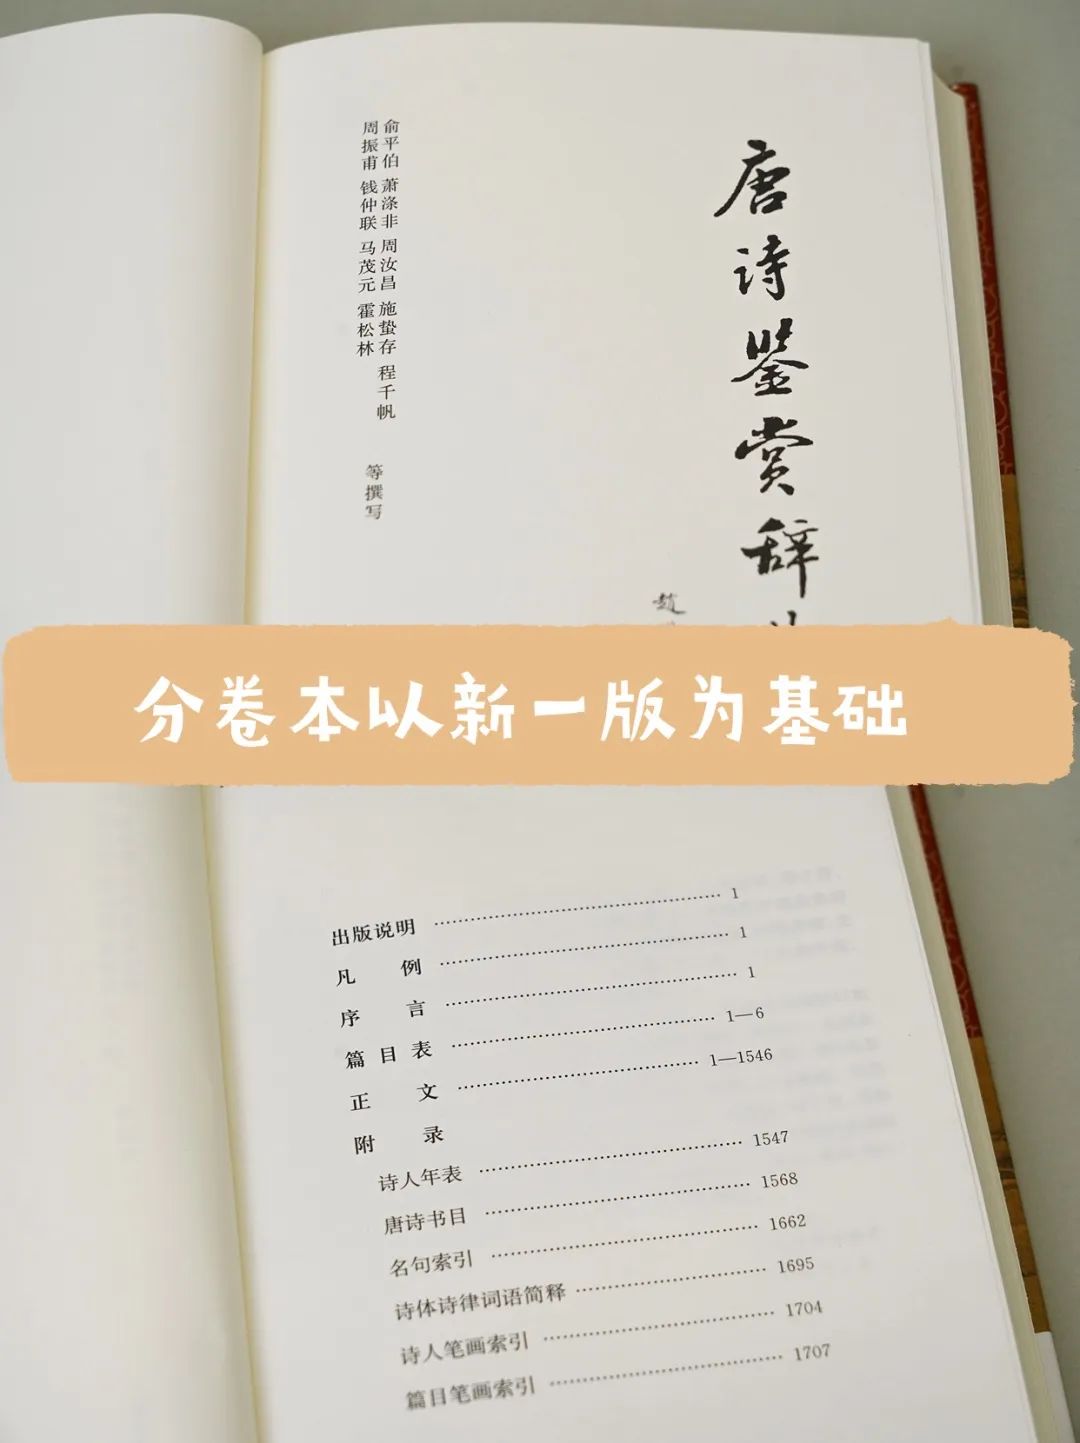 唐诗鉴赏辞
赵
俞平伯 萧涤非 周汝昌 施蛰存 程千帆
周振甫 钱仲联 马茂元 霍松林
等撰写
分卷本以新一版为基础
出版说明 …… 1
凡 例 …… 1
序 言 …… 1
篇 目 表 …… 1—6
正 文 …… 1—1546
附 录
诗人年表 …… 1547
唐诗书目 …… 1568
名句索引 …… 1662
诗体诗律词语简释 …… 1695
诗人笔画索引 …… 1704
篇目笔画索引 …… 1707